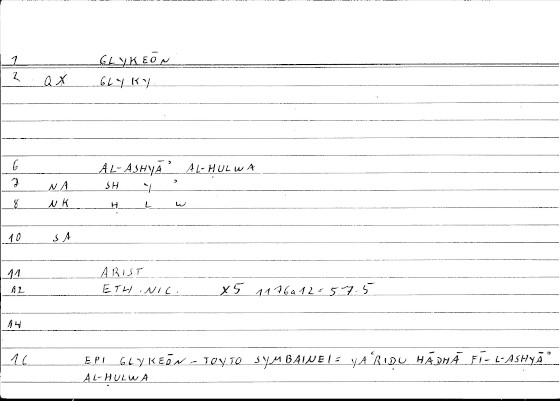 1 GLYKEŌN
2 QX GLYKY
6 AL-ASHYĀʾ AL-ḤULWA
7 NA SH Y ʾ
8 NK Ḥ L W
10 SA
11 ARIST
12 ETH. NIC. X5 1176a12 = 57.5
14
16 EPI GLYKEŌN - TOYTO SYMBAINEI = YAʿRIḌU HĀDHĀ FĪ-L-ASHYĀʾ
AL-ḤULWA